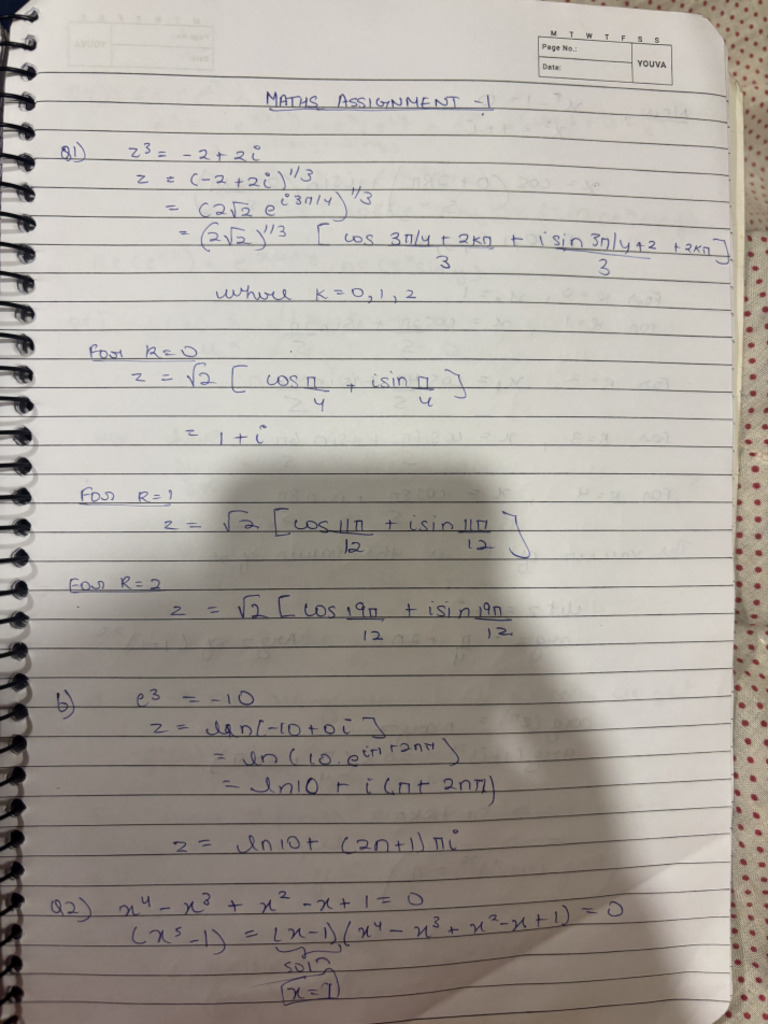 M T W T F S S
Page No.:
Date:
YOUVA
MATHS ASSIGNMENT -1
Q1) z³ = -2+2i
z = (-2+2i)^1/3
= (2√2 e^i3π/4)^1/3
= (2√2)^1/3 [cos 3π/4+2kπ/3 + i sin 3π/4+2+2kπ/3]
where K=0,1,2
For K=0
z = √2 [cos π/4 + isin π/4]
= 1+i
For K=1
z = √2 [cos 11π/12 + isin 11π/12]
For K=2
z = √2 [cos 19π/12 + isin 19π/12
b) e³ = -10
z = ln[-10+0i]
= ln(10.e^iπ+2nπ)
= ln10 + i(π+2nπ)
z = ln10+ (2n+1)πi
Q2) x⁴ - x³ + x² - x + 1 = 0
(x⁵-1) = (x-1)(x⁴-x³+x²-x+1) = 0
soln
x=1